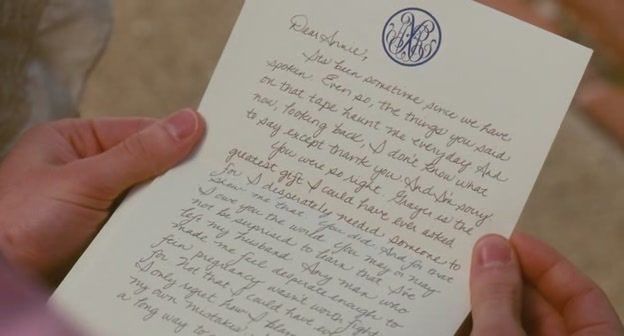 Dear Annie,
Its been sometime since we have
spoken. Even so, the things you said
on that tape haunt me everyday. And
now, looking back, I don't know what
to say except thank you. And I'm sorry.
You were so right. Grayer is the
greatest gift I could have ever asked
for. I desperately needed someone to
show me that. You did. And for that
I owe you the world. You may or may
not be surprised to learn that I've
left my husband. Any man who
made me feel desperate enough to
feign pregnancy wasn't worth fight
for. Not that I could have
I only regret how I blam
my own mistakes
a long way to